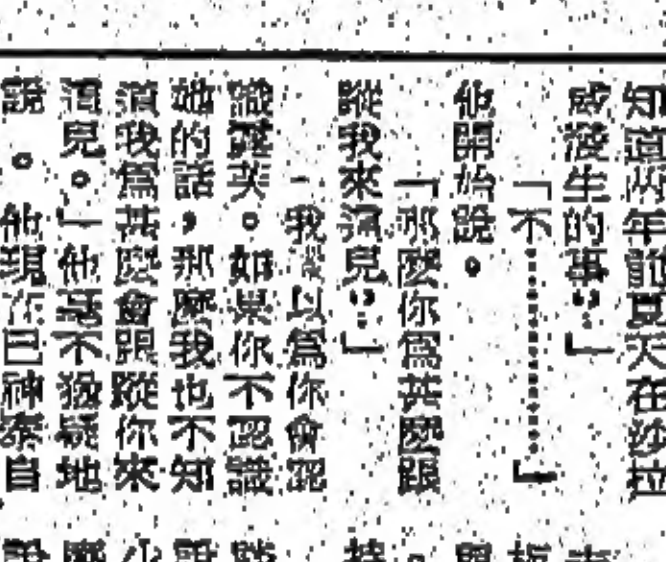 知道两年前夏天在沙拉
威淩生的事？」
「不…………」
他開始說。
「那麽你爲甚麽跟
蹤我來這兒？」
「我以爲你會認
識露芙。如果你不認識
她的話，那麼我也不知
道我爲甚麽會跟蹤你來
這兒。」他毫不猶疑地
說。他現在已神泰自